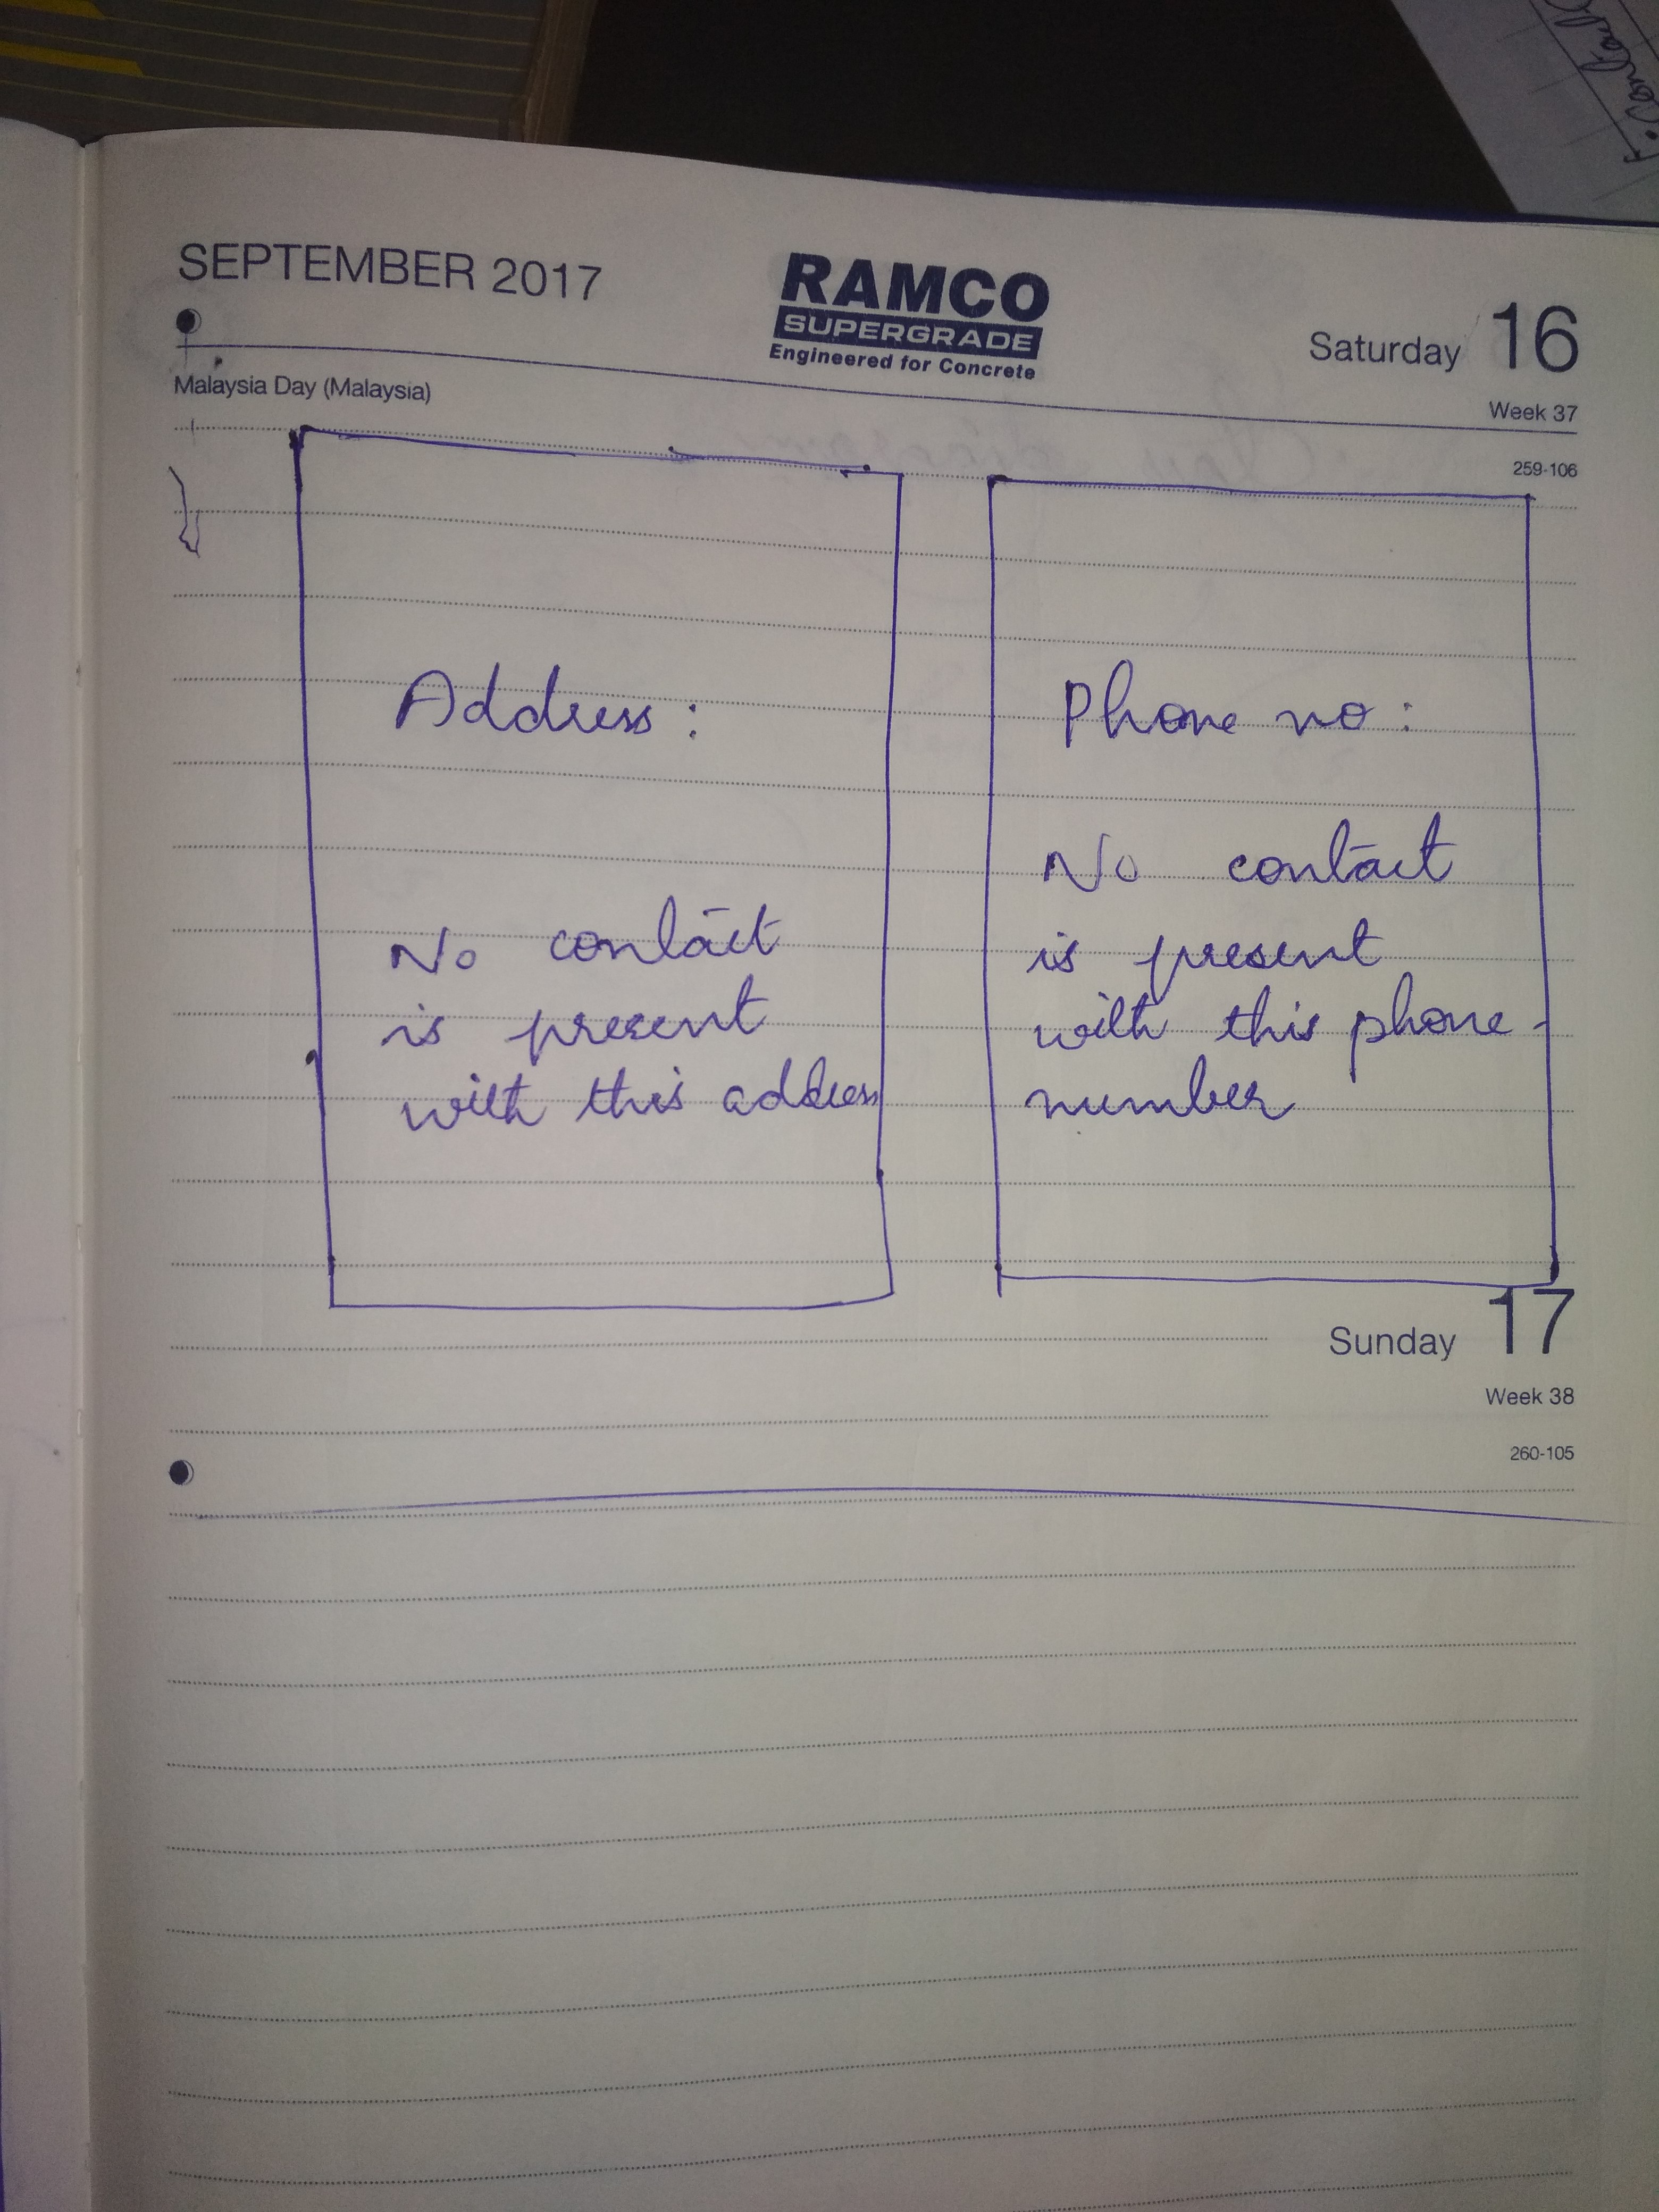 SEPTEMBER 2017
RAMCO
SUPERGRADE
Engineered for Concrete
Saturday 16
Malaysia Day (Malaysia)
Week 37
259-106
Address:
No contact
is present
with this address
Phone no:
No contact
is present
with this phone-
number
Sunday 17
Week 38
260-105